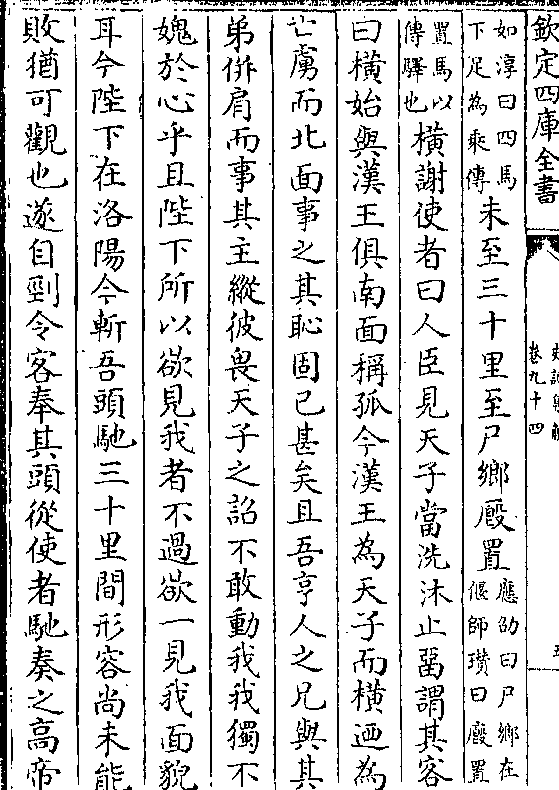 欽定四庫全書
卷九十四
如淳曰四馬
下足為乘傳
未至三十里至尸鄉廄置
應劭曰尸鄉在
偃師瓚曰廄置
置馬以
傳驛也
橫謝使者曰人臣見天子當洗沐止畱謂其客
曰橫始與漢王俱南面稱孤今漢王為天子而橫迺為
亡虜而北面事之其恥固已甚矣且吾亨人之兄與其
弟併肩而事其主縱彼畏天子之詔不敢動我我獨不
媿於心乎且陛下所以欲見我者不過欲一見我面貌
耳今陛下在洛陽今斬吾頭馳三十里間形容尚未能
敗猶可觀也遂自剄令客奉其頭從使者馳奏之高帝